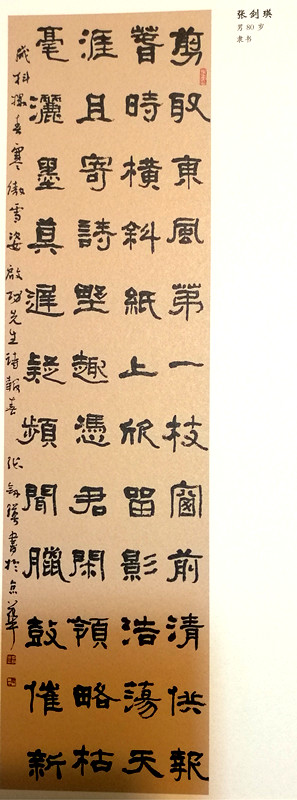 张剑瑛
男 80 岁
隶书
剪取東風第一枝窗前清供報
萅時橫斜紙上欣留影浩蕩天
涯且寄詩埜趣憑君閑領略枯
毫灑墨莫遲疑頻聞臘鼓催新
歲料春寒傲雪姿 啟功先生詩報春 張劍瑛書於京華